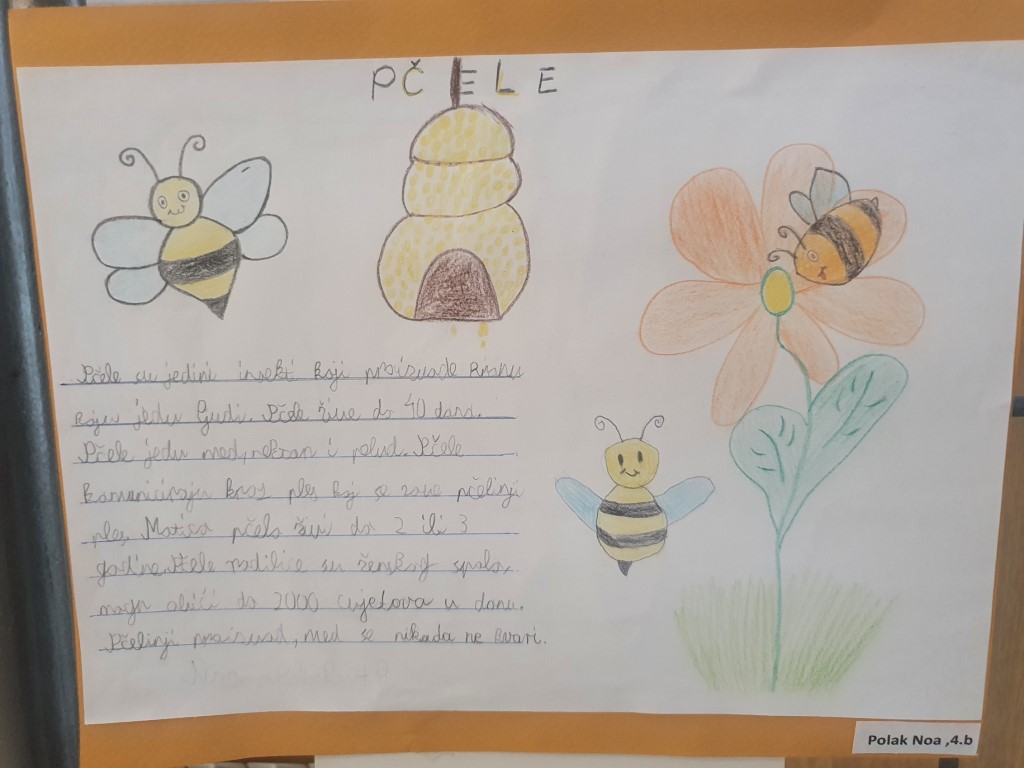 PČELE
Pčele su jedini insekt koji proizvode hranu
koju jedu ljudi. Pčele žive do 40 dana.
Pčele jedu med, nektar i pelud. Pčele
komuniciraju kroz ples koji se zove pčelinji
ples. Matica pčela živi do 2 ili 3
godine. Pčele radilice su ženskog spola,
mogu obići do 2000 cvjetova u danu.
Pčelinji proizvod, med se nikada ne kvari.
Polak Noa ,4.b